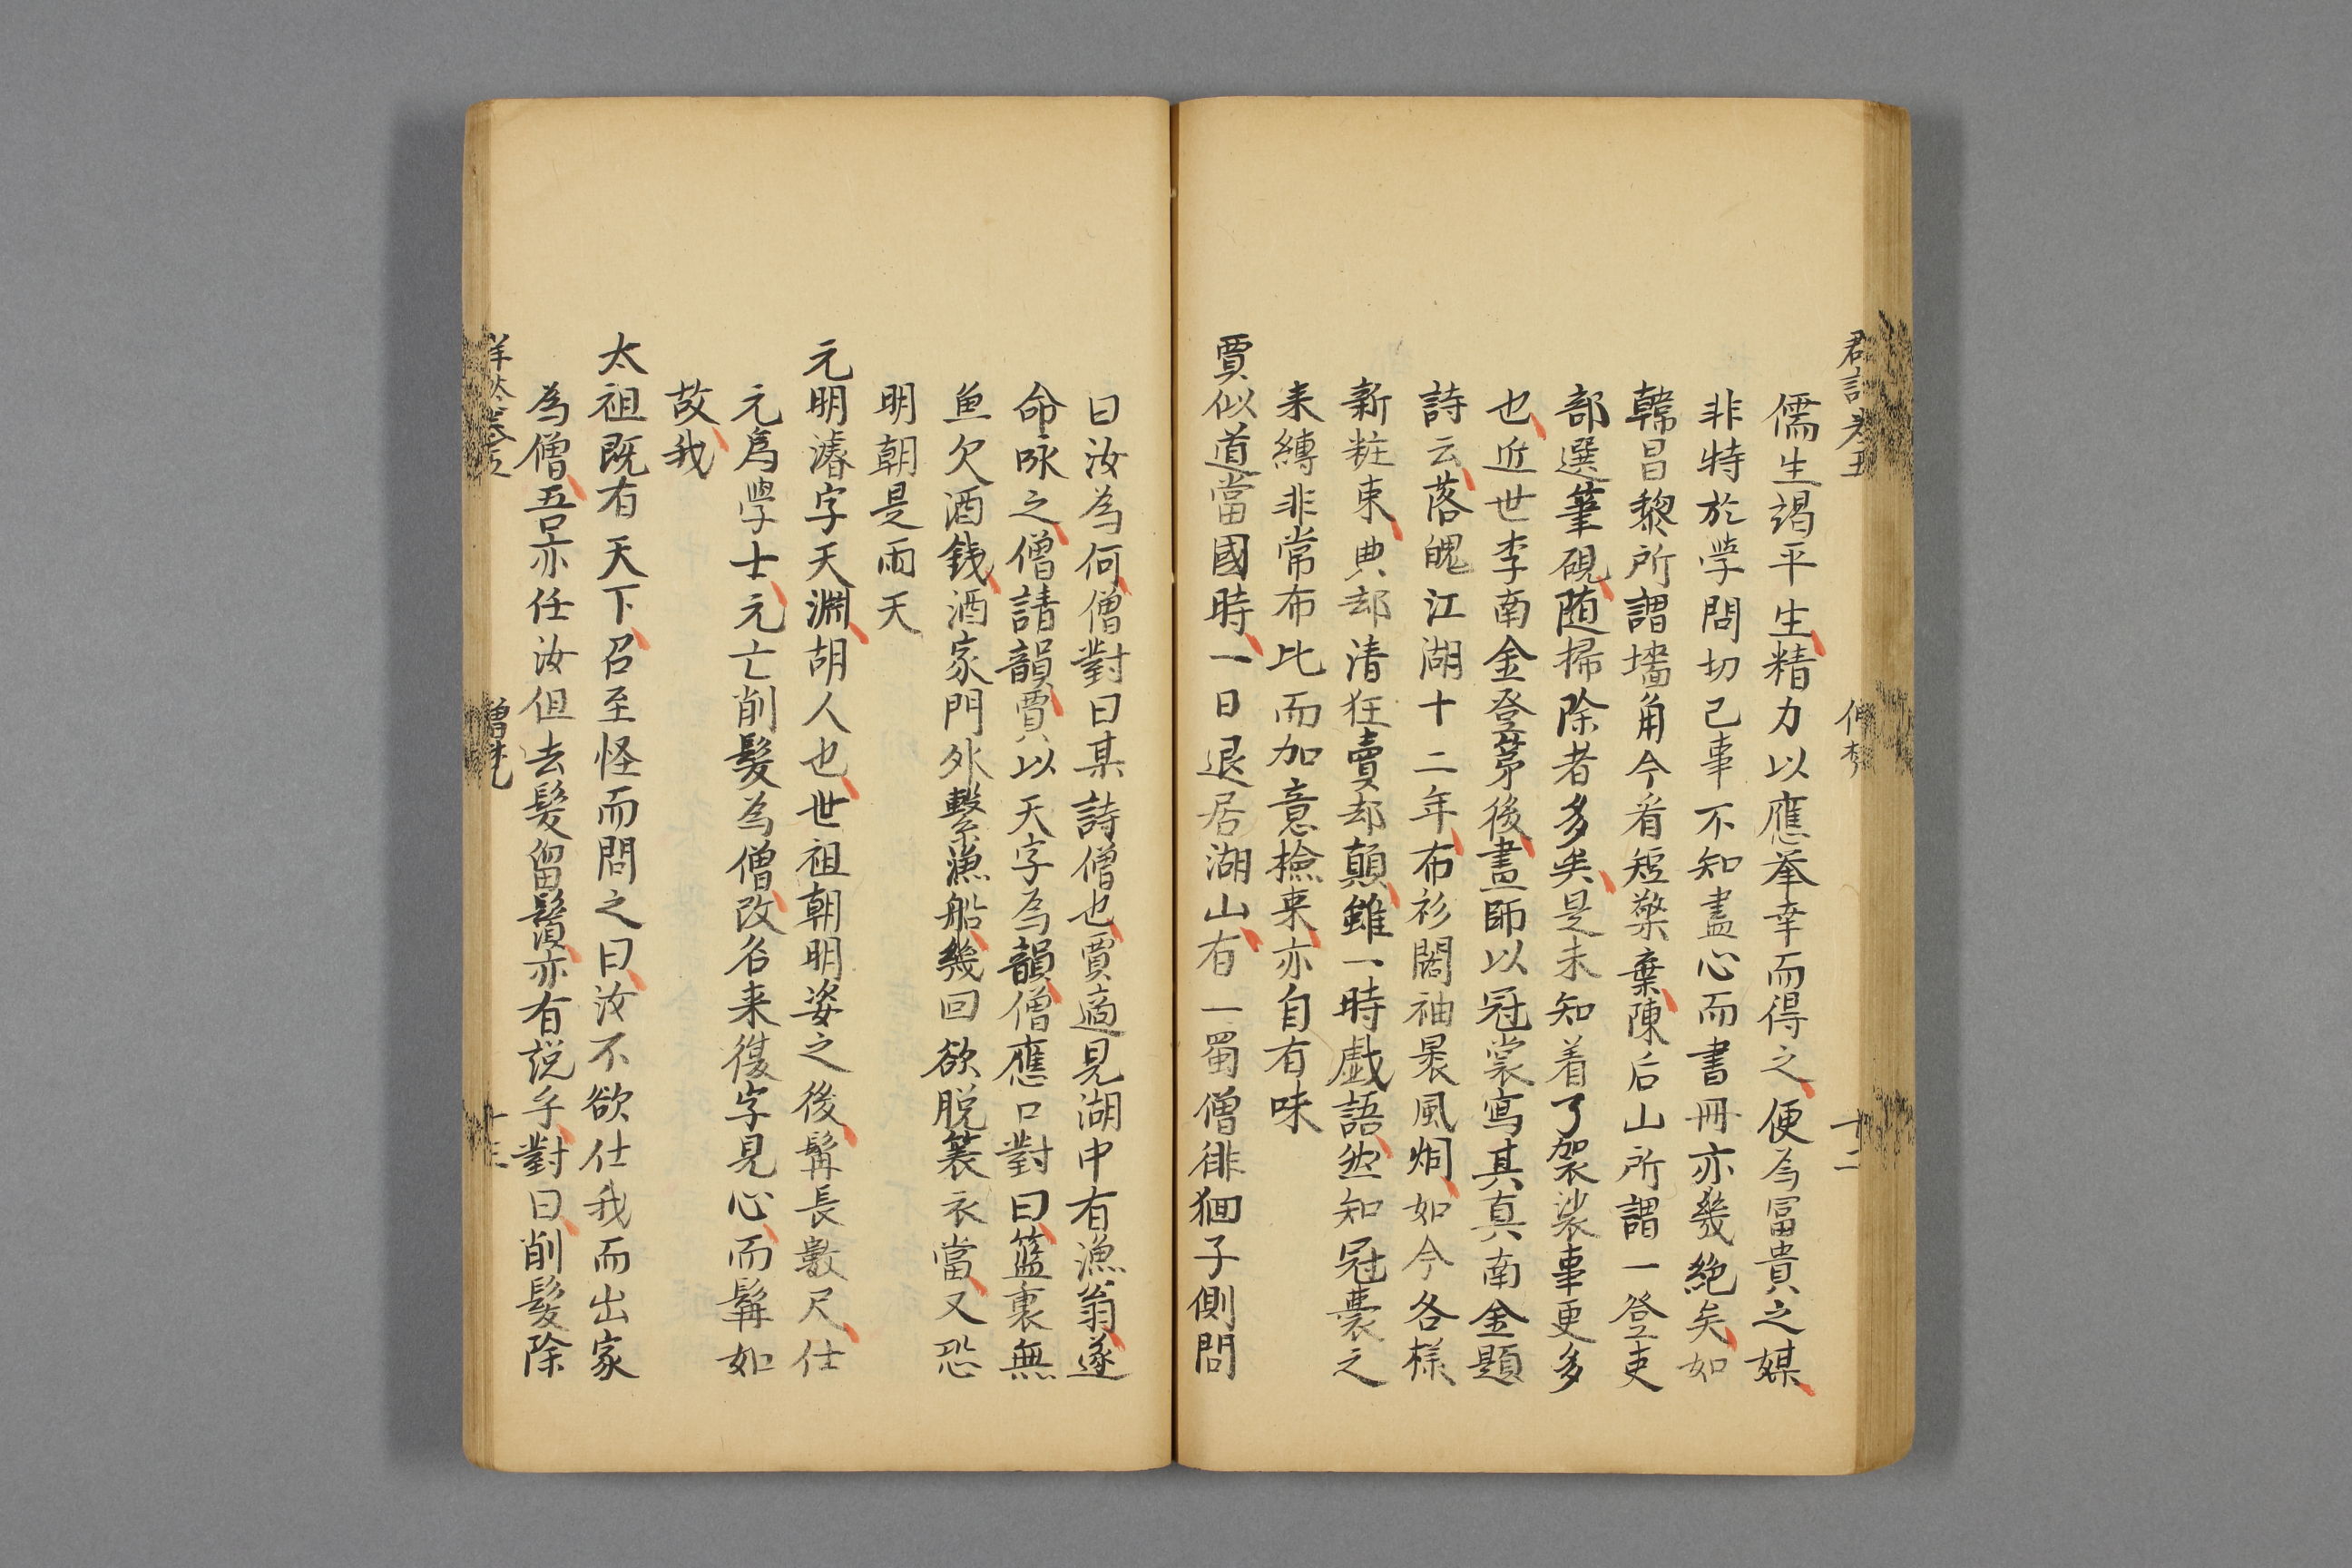 儒生竭平生精力以應举幸而得之便為冨貴之媒
非特於學問切己事不知盡心而書冊亦幾絶矣如
韓昌黎所謂墻角今看短檠棄陳后山所謂一登吏
部選筆硯随掃除者多矣是未知着了袈裟事更多
也近世李南金登苐後畫師以冠裳寫其真南金題
詩云落魄江湖十二年布衫闊袖裊風烟如今各樣
新粧束典却清狂賣却顛雖一時戯語然知冠裹之
来縛非常布比而加意檢束亦自有味
賈似道當國時一日退居湖山有一蜀僧徘徊子側問
曰汝為何僧對曰某詩僧也賈適見湖中有漁翁遂
命咏之僧請韻賈以天字為韻僧應口對曰籃裏無
魚欠酒錢酒家門外繫漁船幾回欲脱簑衣當又恐
明朝是雨天
元明濬字天淵胡人也世祖朝明姿之後髯長數尺仕
元為學士元亡削髮為僧改名来復字見心而髯如
故我
太祖既有天下召至怪而問之曰汝不欲仕我而出家
為僧吾亦任汝但去髮留鬚亦有説乎對曰削髮除